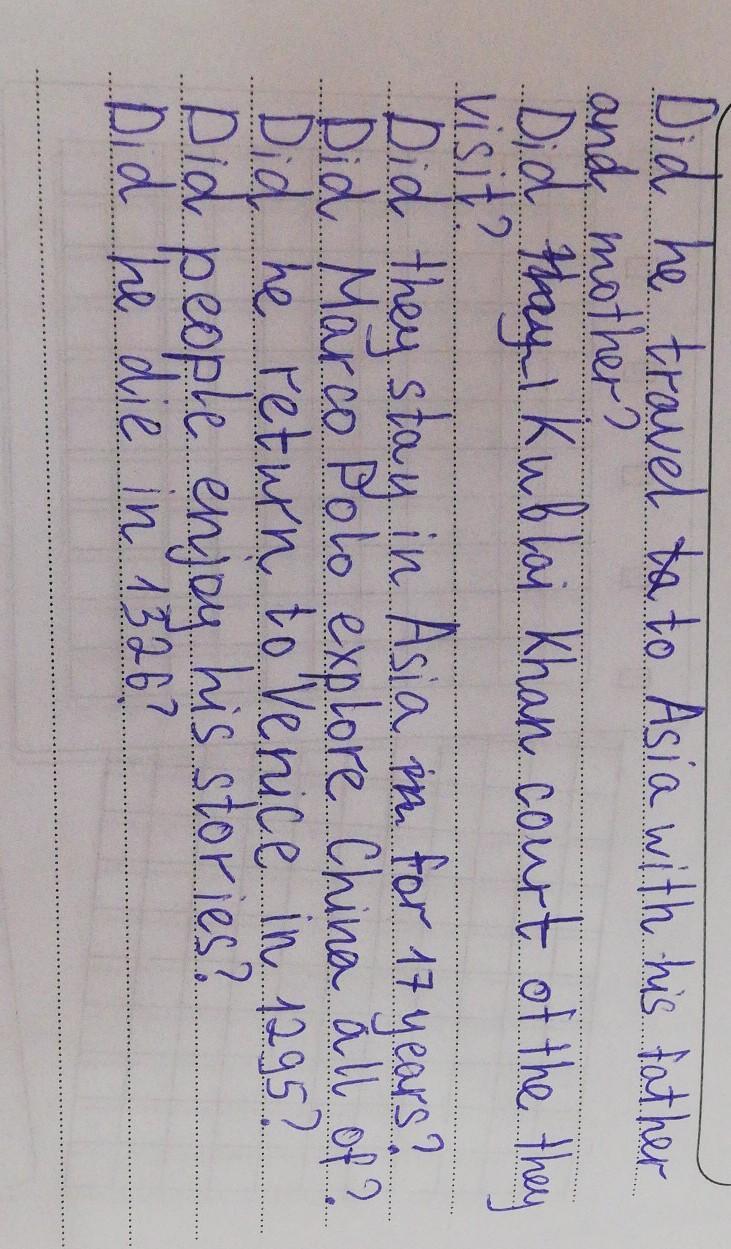 Did he travel ta to Asia with his father
and mother?
Did they Kublai Khan court of the they
visit?
Did they stay in Asia in for 17 years?
Did Marco Polo explore China all of?
Did he return to Venice in 1295?
Did people enjoy his stories?
Did he die in 1326?